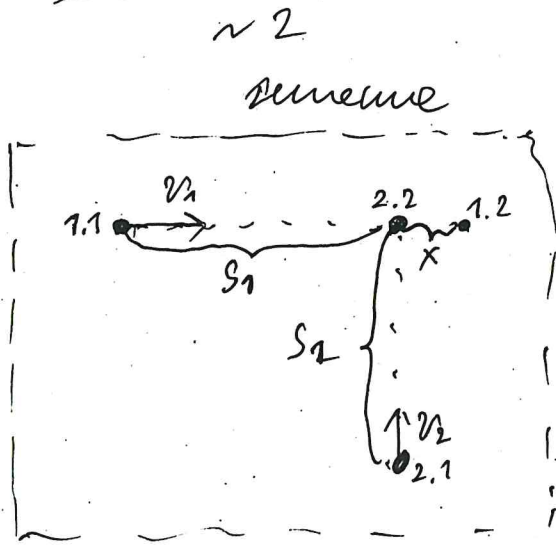 ~ 2
решение
1.1
v₁
2.2
1.2
S₁
x
S₂
v₂
2.1